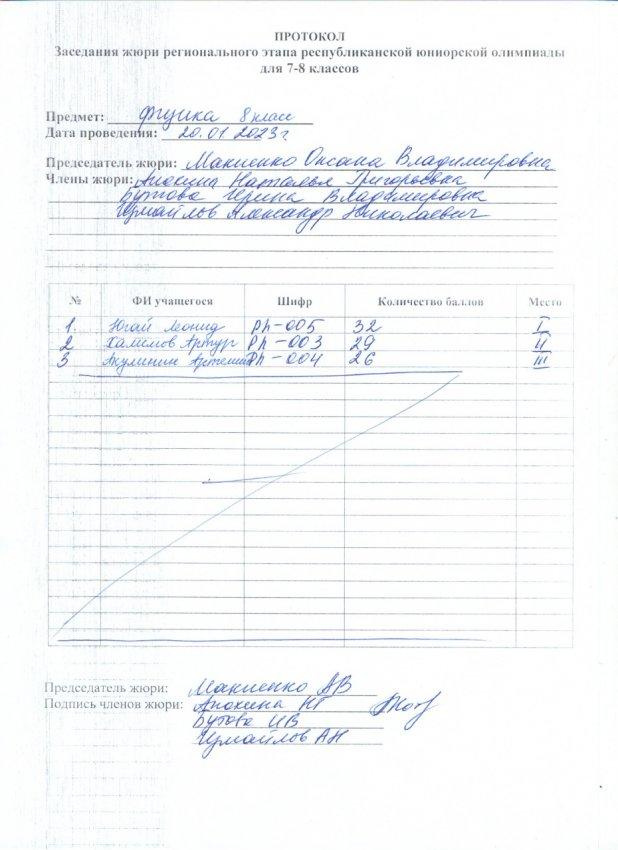 ПРОТОКОЛ
Заседания жюри регионального этапа республиканской юниорской олимпиады
для 7-8 классов
Предмет: физика 8 класс
Дата проведения: 20.01 2023г
Председатель жюри: Макиенко Оксана Владимировна
Члены жюри: Анохина Наталья Григорьевна
Бутова Ирина Владимировна
Измайлов Александр Николаевич
№ ФИ учащегося Шифр Количество баллов Место
1. Югай Леонид Ph-005 32 I
2 Халимов Артур Ph-003 29 II
3 Акулинин Артемий Ph-004 26 III
Председатель жюри: Макиенко
Подпись членов жюри: Анохина НГ
Бутова ИВ
Измайлов АН